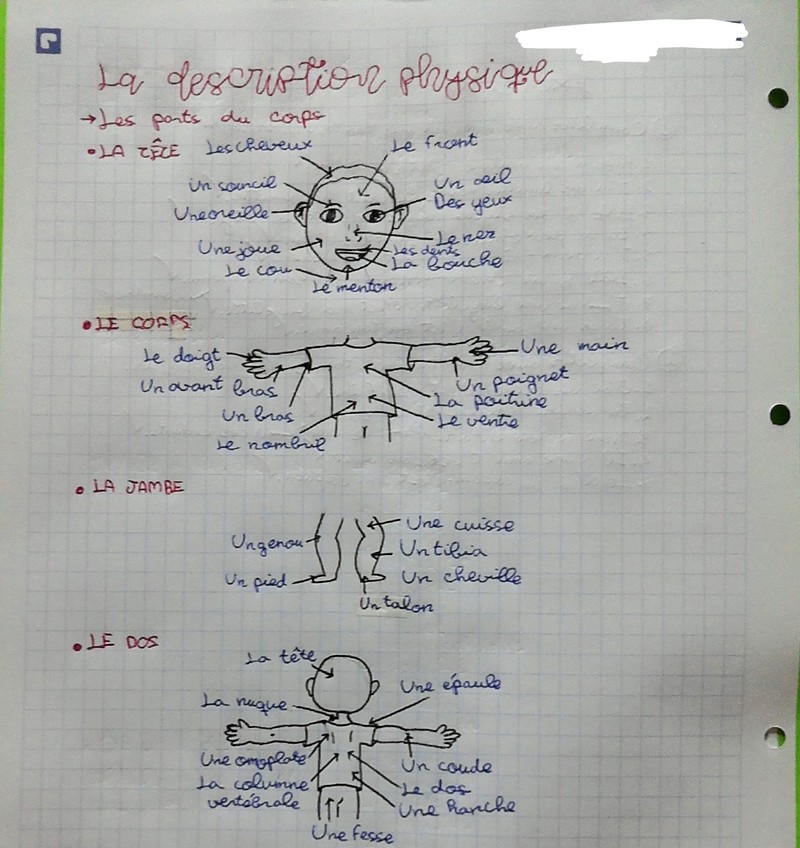 La description physique
→ Les parts du corps
• LA TÊTE
Les cheveux
Le front
Un sourcil
Un oeil
Une oreille
Des yeux
Une joue
Le nez
Les dents
Le cou
La bouche
Le menton
• LE CORPS
Le doigt
Une main
Un avant bras
Un poignet
Un bras
La poitrine
Le nombril
Le ventre
• LA JAMBE
Un genou
Une cuisse
Un tibia
Un pied
Un cheville
Un talon
• LE DOS
La tête
La nuque
Une épaule
Une omoplate
Un coude
La columne
vertébrale
Le dos
Une hanche
Une fesse